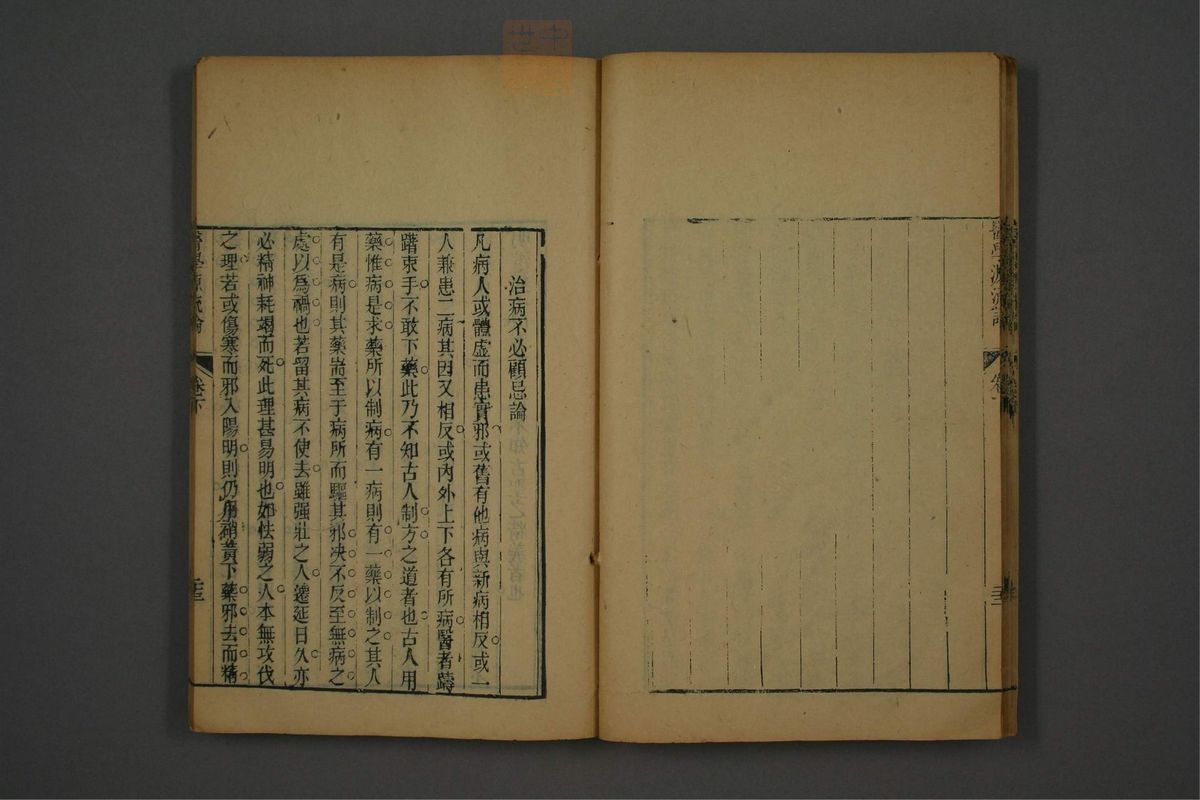 治病不必顧忌論
凡病人或體虛而患實邪或舊有他病與新病相反或一
人兼患二病其因又相反或內外上下各有所病醫者躊
躇束手不敢下藥此乃不知古人制方之道者也古人用
藥惟病是求藥所以制病有一病則有一藥以制之其人
有是病則其藥耑至于病所而驅其邪决不反至無病之
處以爲禍也若留其病不使去雖强壯之人遷延日久亦
必精神耗竭而死此理甚易明也如怯弱之人本無攻伐
之理若或傷寒而邪入陽明則仍用硝黃下藥邪去而精
醫學源流論
卷下